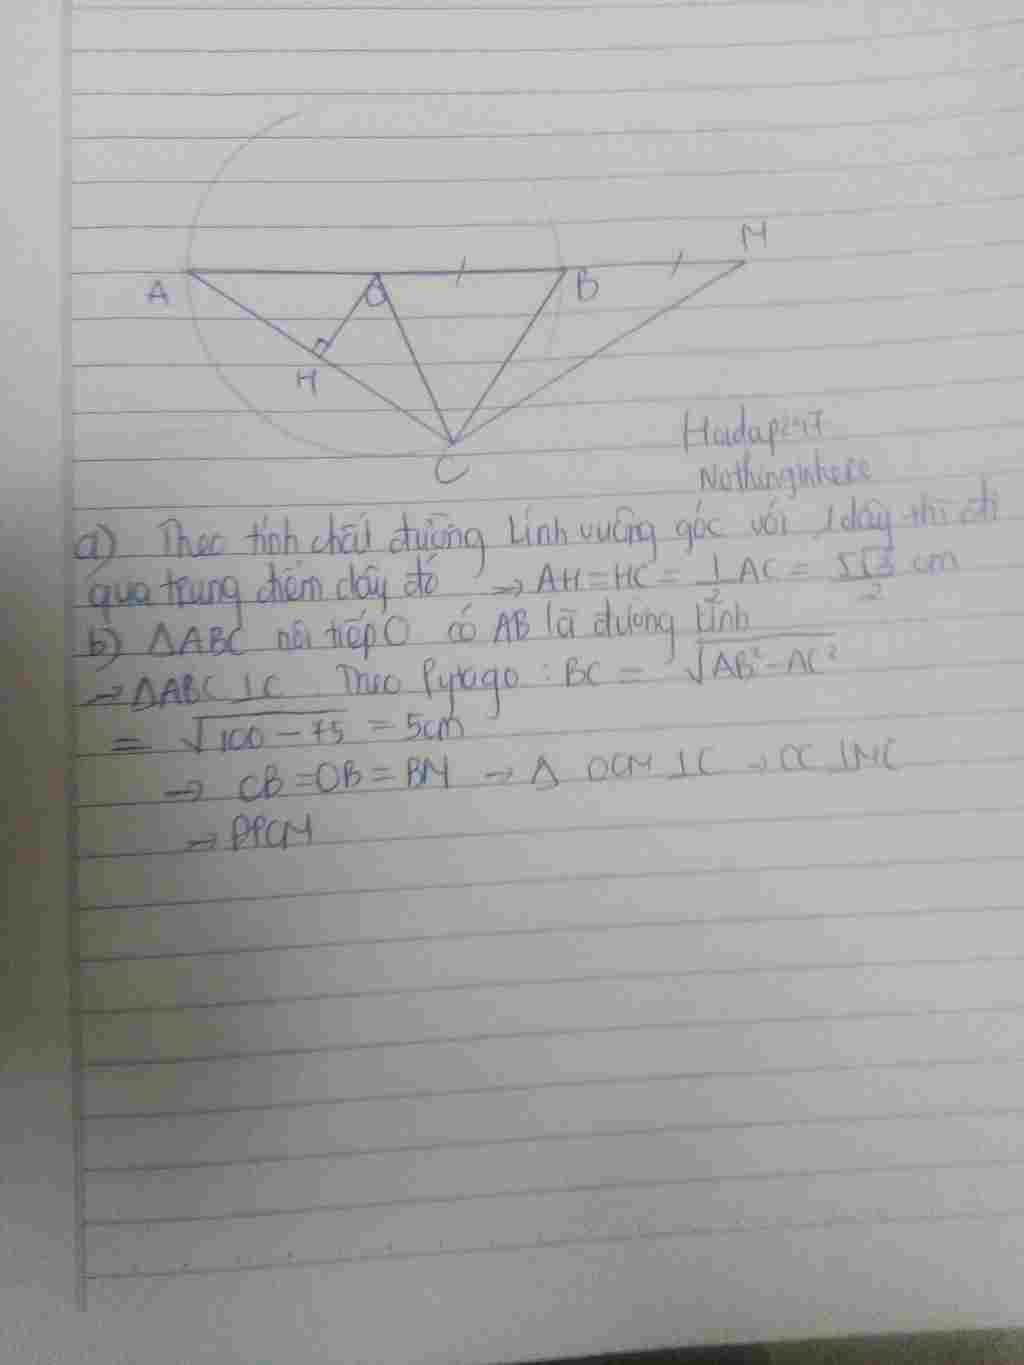 M
A
O
B
H
C
Hoidap247
Nothingwhere
a) Theo tính chất đường kính vuông góc với 1 dây thì đi
qua trung điểm dây đó → AH = HC = 1/2 AC = 5√3/2 cm
b) ΔABC nội tiếp O có AB là đường kính
→ ΔABC ⊥ C Theo Pytago : BC = √AB² - AC²
= √100 - 75 = 5cm
→ CB = OB = BM → Δ OCM ⊥ C → OC ⊥ MC
→ ĐPCM